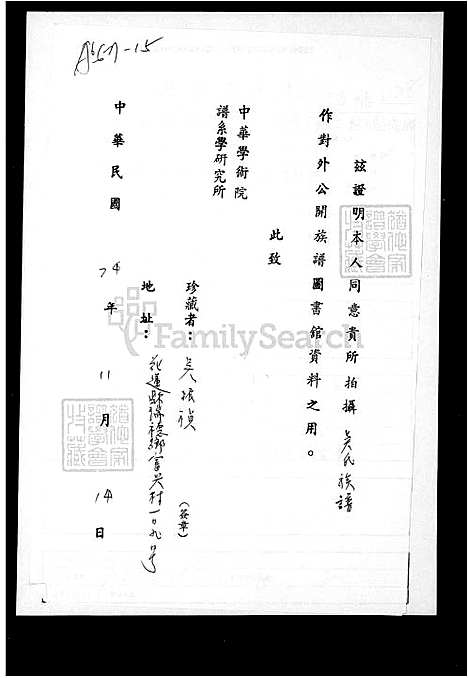 茲證明本人同意貴所拍攝 吳氏族譜
作對外公開族譜圖書館資料之用。
此致
中華學術院
譜系學研究所
珍藏者：吳振禎 (簽章)
地址：花蓮縣瑞穗鄉富興村一0九號
中華民國 74年 11月 14日
FamilySearch